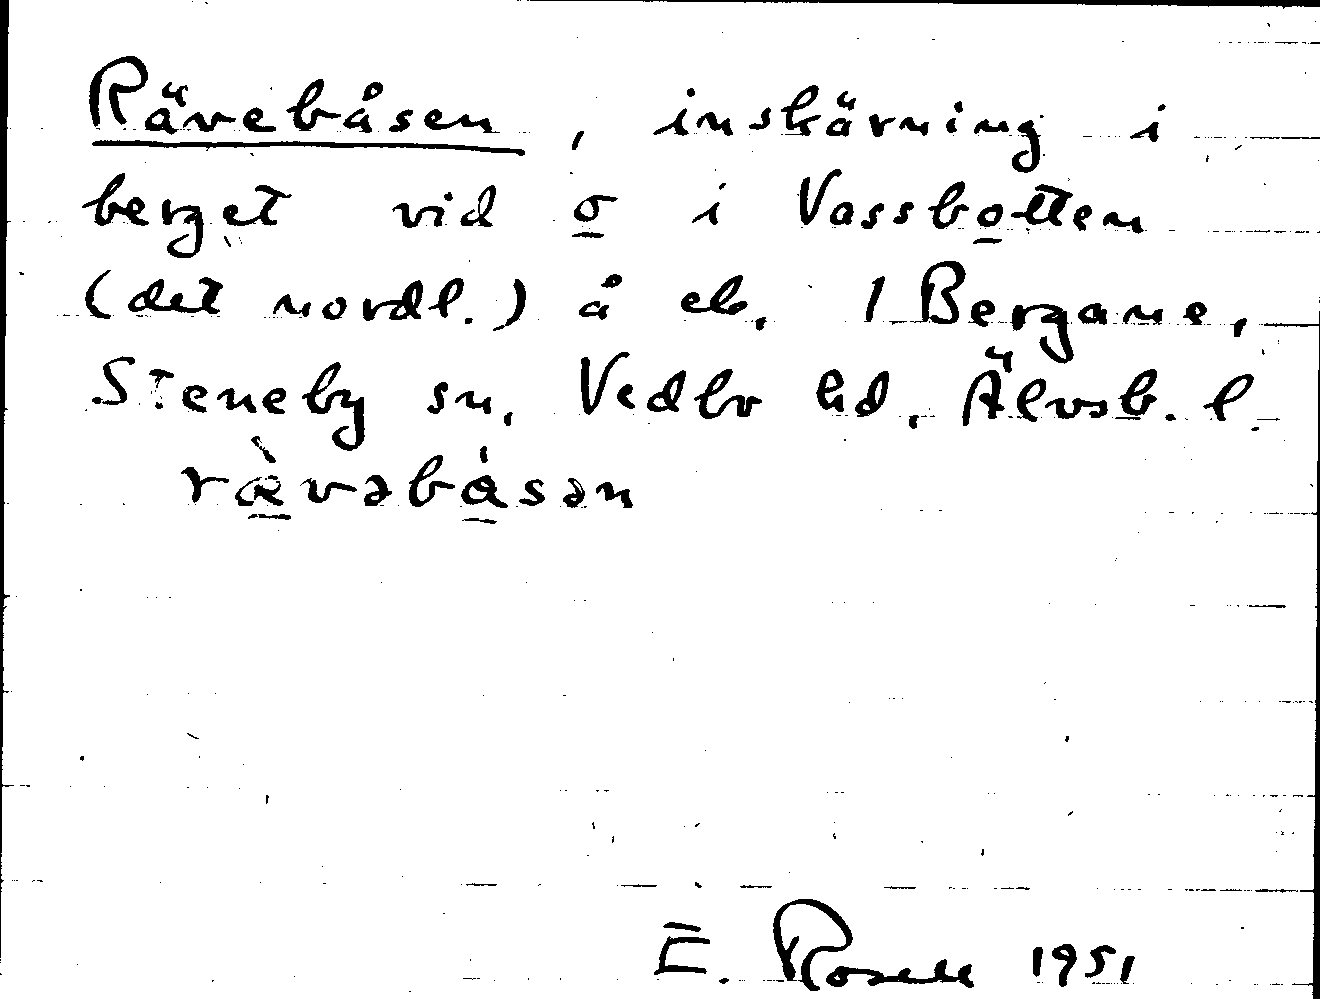 Rävebåsen, inskärning i
berget vid o i Vassbotten
(det nordl.) å eb. 1 Bergane,
Steneby sn, Vedbo hd, Älvsb. l.
rævəbåsən
E. Rosell 1951